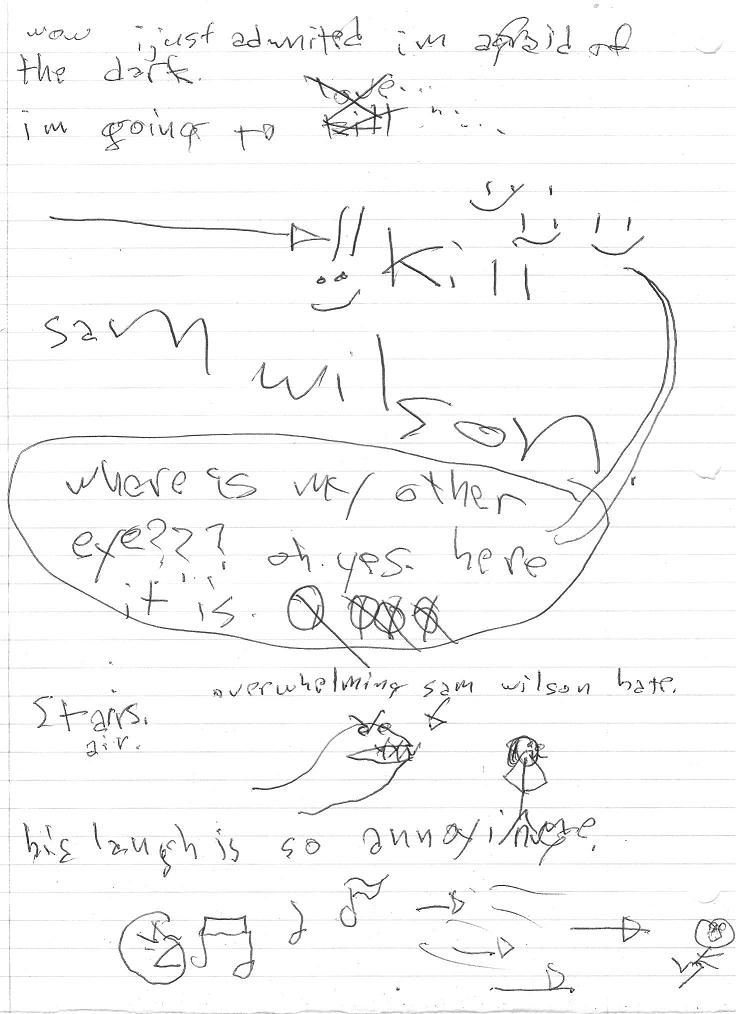 wow ijust admited im afraid of
the dark.
love...
im going to kill ......
kill
sam
wilson
where is my other
eye??? oh. yes. here
it is.
overwhelming sam wilson hate.
Stairs.
air.
his laugh is so annoying.